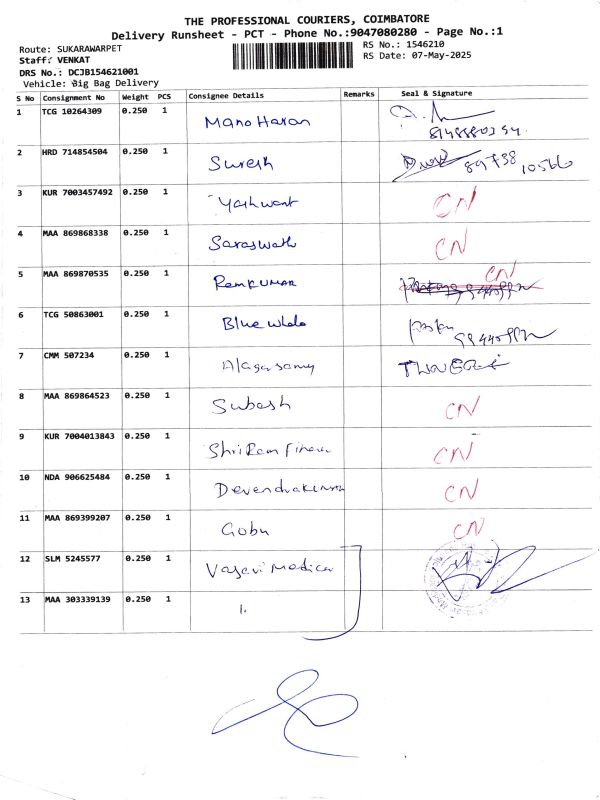 THE PROFESSIONAL COURIERS, COIMBATORE
Delivery Runsheet - PCT - Phone No.:9047080280 - Page No.:1
Route: SUKARAWARPET
Staff: VENKAT
DRS No.: DCJB154621001
Vehicle: Big Bag Delivery
RS No.: 1546210
RS Date: 07-May-2025
S No Consignment No Weight PCS Consignee Details Remarks Seal & Signature
1 TCG 10264309 0.250 1 Mano Haran
2 HRD 714854504 0.250 1 Suresh 89738 10560
3 KUR 7003457492 0.250 1 Yashwant CN
4 MAA 869868338 0.250 1 Saraswathi CN
5 MAA 869870535 0.250 1 RamKUMAR CN
6 TCG 50863001 0.250 1 Blue whale
7 CMM 507234 0.250 1 Alagarsamy
8 MAA 869864523 0.250 1 Subash CN
9 KUR 7004013843 0.250 1 Shri Ram Finance CN
10 NDA 906625484 0.250 1 Devendrakumar CN
11 MAA 869399207 0.250 1 Gobu CN
12 SLM 5245577 0.250 1 Vasavi Medical
13 MAA 303339139 0.250 1